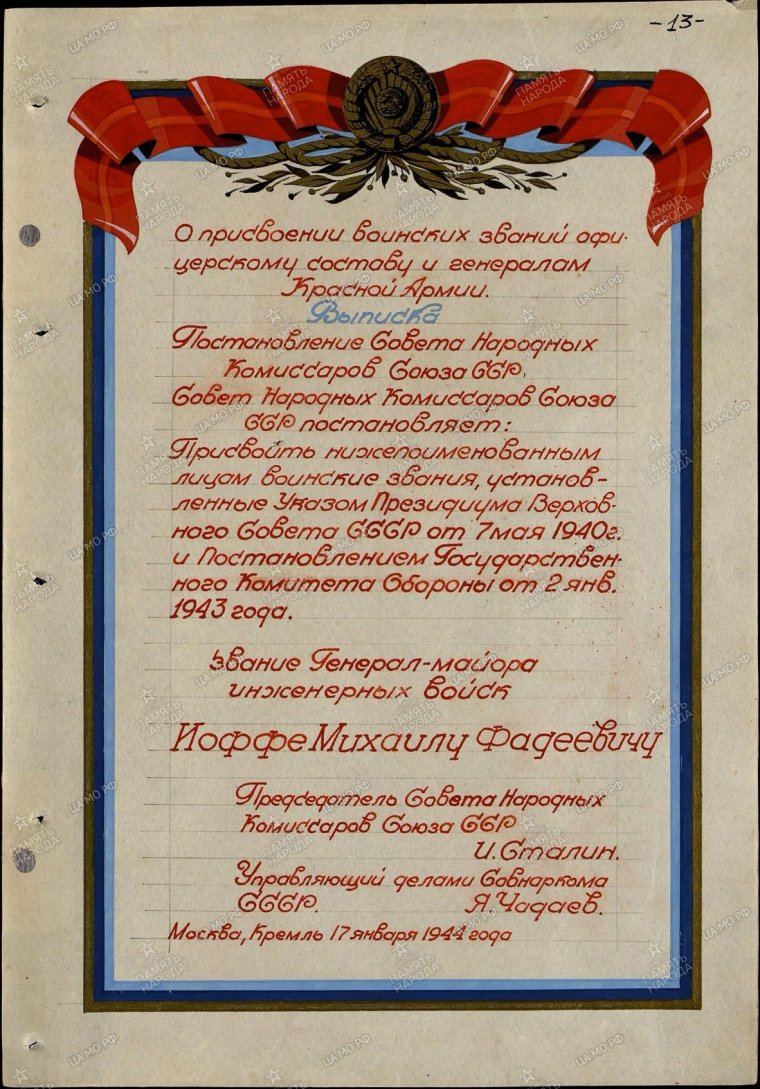 -13-
О присвоении воинских званий офи-
церскому составу и генералам
Красной Армии.
Выписка
Постановление Совета Народных
Комиссаров Союза ССР.
Совет Народных Комиссаров Союза
ССР постановляет:
Присвоить нижепоименованным
лицам воинские звания, установ-
ленные Указом Президиума Верхов-
ного Совета СССР от 7 мая 1940г.
и Постановлением Государствен-
ного Комитета Обороны от 2 янв.
1943 года.
Звание Генерал-майора
инженерных войск
Иоффе Михаилу Фадеевичу
Председатель Совета Народных
Комиссаров Союза ССР
И. Сталин.
Управляющий делами Совнаркома
СССР. Я. Чадаев.
Москва, Кремль 17 января 1944 года
ПАМЯТЬ НАРОДА
ЦАМО.РФ